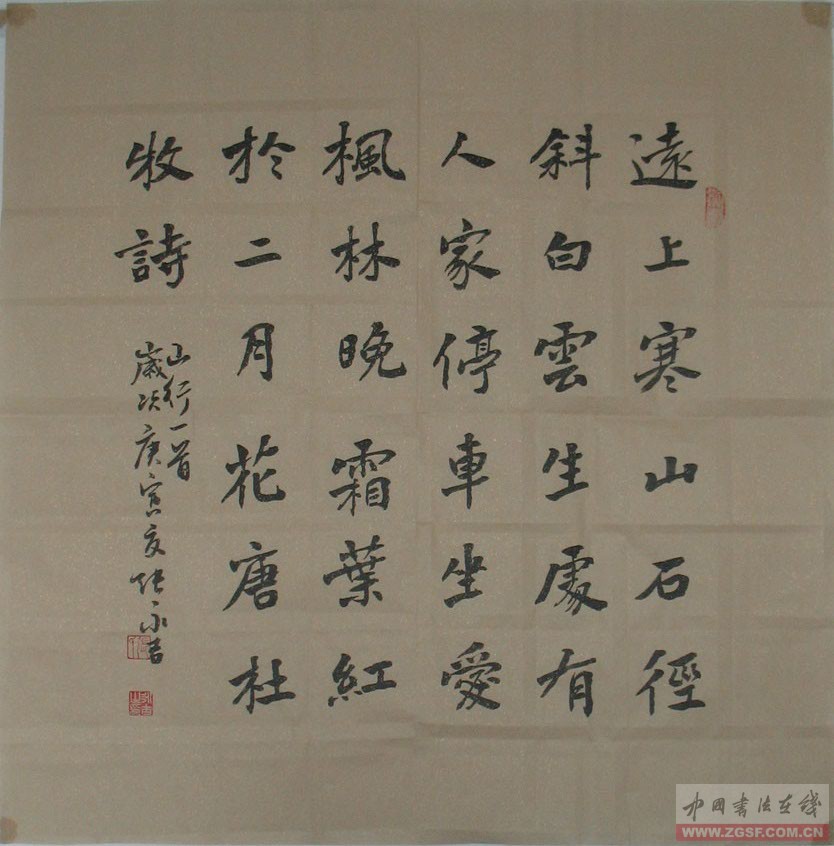 遠上寒山石徑
斜白雲生處有
人家停車坐愛
楓林晚霜葉紅
於二月花唐杜
牧詩
山行一首
歲次庚寅夏張永吉
中国书法在线
WWW.ZGSF.COM.CN